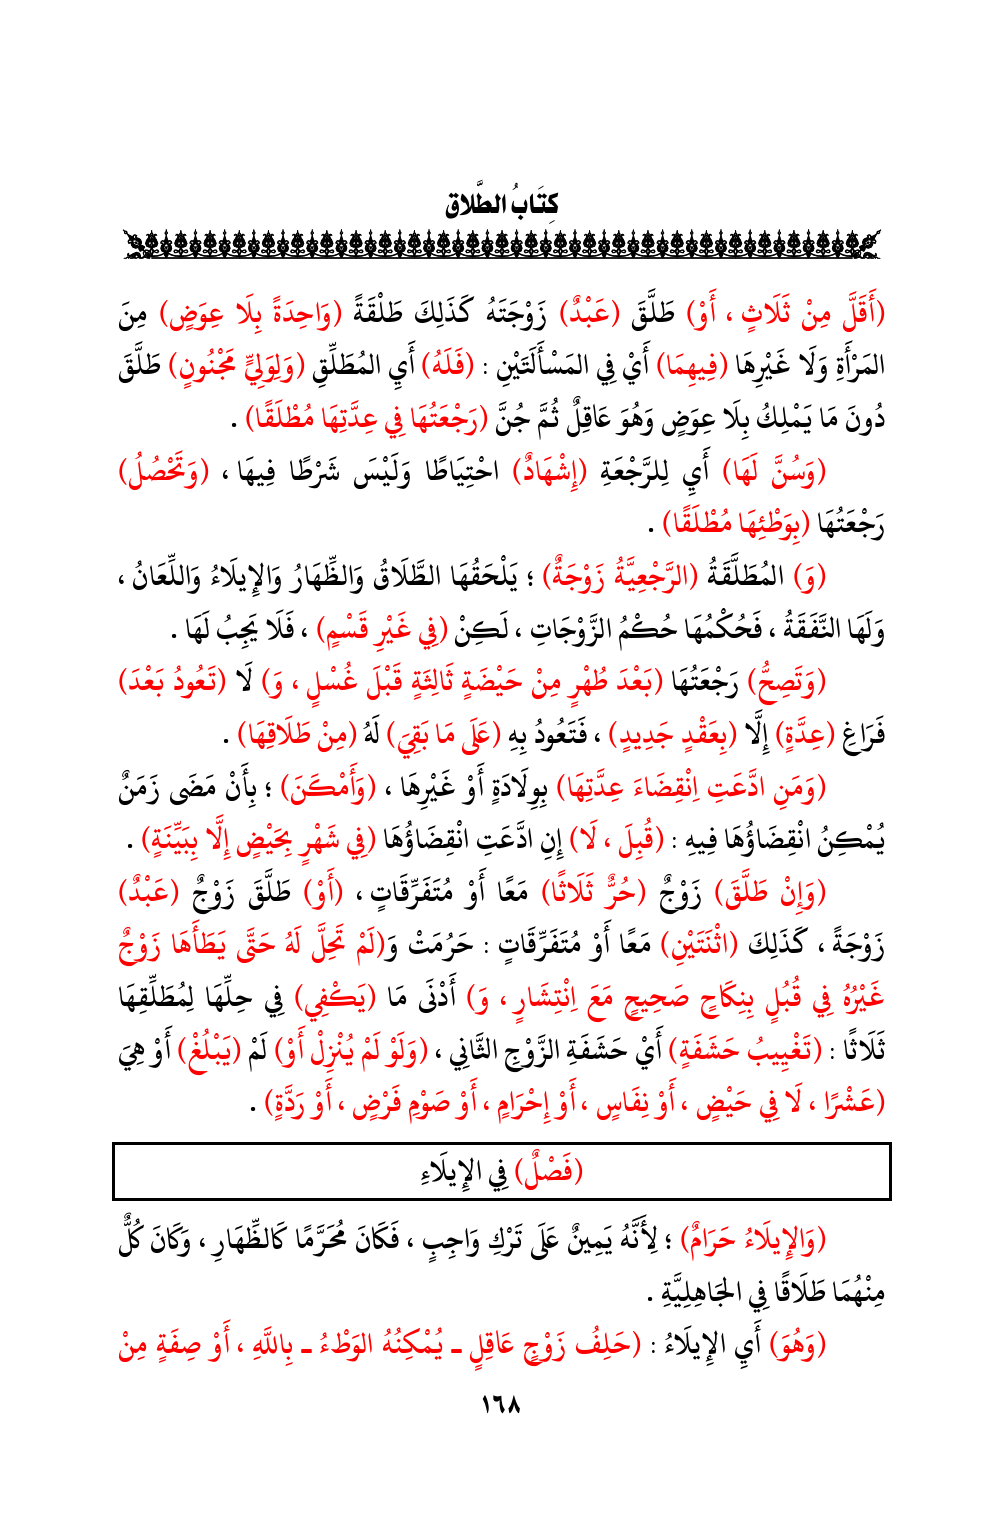 كِتَابُ الطَّلاق
(أَقَلَّ مِنْ ثَلَاثٍ ، أَوْ) طَلَّقَ (عَبْدٌ) زَوْجَتَهُ كَذَلِكَ طَلْقَةً (وَاحِدَةً بِلَا عِوَضٍ) مِنَ
المَرْأَةِ وَلَا غَيْرِهَا (فِيهِمَا) أَيْ فِي المَسْأَلَتَيْنِ : (فَلَهُ) أَيِ المُطَلِّقِ (وَلِوَلِيِّ مَجْنُونٍ) طَلَّقَ
دُونَ مَا يَمْلِكُ بِلَا عِوَضٍ وَهُوَ عَاقِلٌ ثُمَّ جُنَّ (رَجْعَتُهَا فِي عِدَّتِهَا مُطْلَقًا) .
(وَسُنَّ لَهَا) أَيِ لِلرَّجْعَةِ (إِشْهَادٌ) احْتِيَاطًا وَلَيْسَ شَرْطًا فِيهَا ، (وَتَحْصُلُ)
رَجْعَتُهَا (بِوَطْئِهَا مُطْلَقًا) .
(وَ) المُطَلَّقَةُ (الرَّجْعِيَّةُ زَوْجَةٌ) ؛ يَلْحَقُهَا الطَّلَاقُ وَالظِّهَارُ وَالإِيلَاءُ وَاللِّعَانُ ،
وَلَهَا النَّفَقَةُ ، فَحُكْمُهَا حُكْمُ الزَّوْجَاتِ ، لَكِنْ (فِي غَيْرِ قَسْمٍ) ، فَلَا يَجِبُ لَهَا .
(وَتَصِحُّ) رَجْعَتُهَا (بَعْدَ طُهْرٍ مِنْ حَيْضَةٍ ثَالِثَةٍ قَبْلَ غُسْلٍ ، وَ) لَا (تَعُودُ بَعْدَ)
فَرَاغِ (عِدَّةٍ) إِلَّا (بِعَقْدٍ جَدِيدٍ) ، فَتَعُودُ بِهِ (عَلَى مَا بَقِيَ) لَهُ (مِنْ طَلَاقِهَا) .
(وَمَنِ ادَّعَتِ اِنْقِضَاءَ عِدَّتِهَا) بِوِلَادَةٍ أَوْ غَيْرِهَا ، (وَأَمْكَنَ) ؛ بِأَنْ مَضَى زَمَنٌ
يُمْكِنُ انْقِضَاؤُهَا فِيهِ : (قُبِلَ ، لَا) إِنِ ادَّعَتِ انْقِضَاؤُهَا (فِي شَهْرٍ بِحَيْضٍ إِلَّا بِبَيِّنَةٍ) .
(وَإِنْ طَلَّقَ) زَوْجٌ (حُرٌّ ثَلَاثًا) مَعًا أَوْ مُتَفَرِّقَاتٍ ، (أَوْ) طَلَّقَ زَوْجٌ (عَبْدٌ)
زَوْجَةً ، كَذَلِكَ (اثْنَتَيْنِ) مَعًا أَوْ مُتَفَرِّقَاتٍ : حَرُمَتْ وَ(لَمْ تَحِلَّ لَهُ حَتَّى يَطَأَهَا زَوْجٌ
غَيْرُهُ فِي قُبُلٍ بِنِكَاحٍ صَحِيحٍ مَعَ اِنْتِشَارٍ ، وَ) أَدْنَى مَا (يَكْفِي) فِي حِلِّهَا لِمُطَلِّقِهَا
ثَلَاثًا : (تَغْيِيبُ حَشَفَةٍ) أَيْ حَشَفَةِ الزَّوْجِ الثَّانِي ، (وَلَوْ لَمْ يُنْزِلْ أَوْ) لَمْ (يَبْلُغْ) أَوْ هِيَ
(عَشْرًا ، لَا فِي حَيْضٍ ، أَوْ نِفَاسٍ ، أَوْ إِحْرَامٍ ، أَوْ صَوْمِ فَرْضٍ ، أَوْ رَدَّةٍ) .
(فَصْلٌ) فِي الإِيلَاءِ
(وَالإِيلَاءُ حَرَامٌ) ؛ لِأَنَّهُ يَمِينٌ عَلَى تَرْكِ وَاجِبٍ ، فَكَانَ مُحَرَّمًا كَالظِّهَارِ ، وَكَانَ كُلٌّ
مِنْهُمَا طَلَاقًا فِي الجَاهِلِيَّةِ .
(وَهُوَ) أَيِ الإِيلَاءُ : (حَلِفُ زَوْجٍ عَاقِلٍ ـ يُمْكِنُهُ الوَطْءُ ـ بِاللَّهِ ، أَوْ صِفَةٍ مِنْ
١٦٨